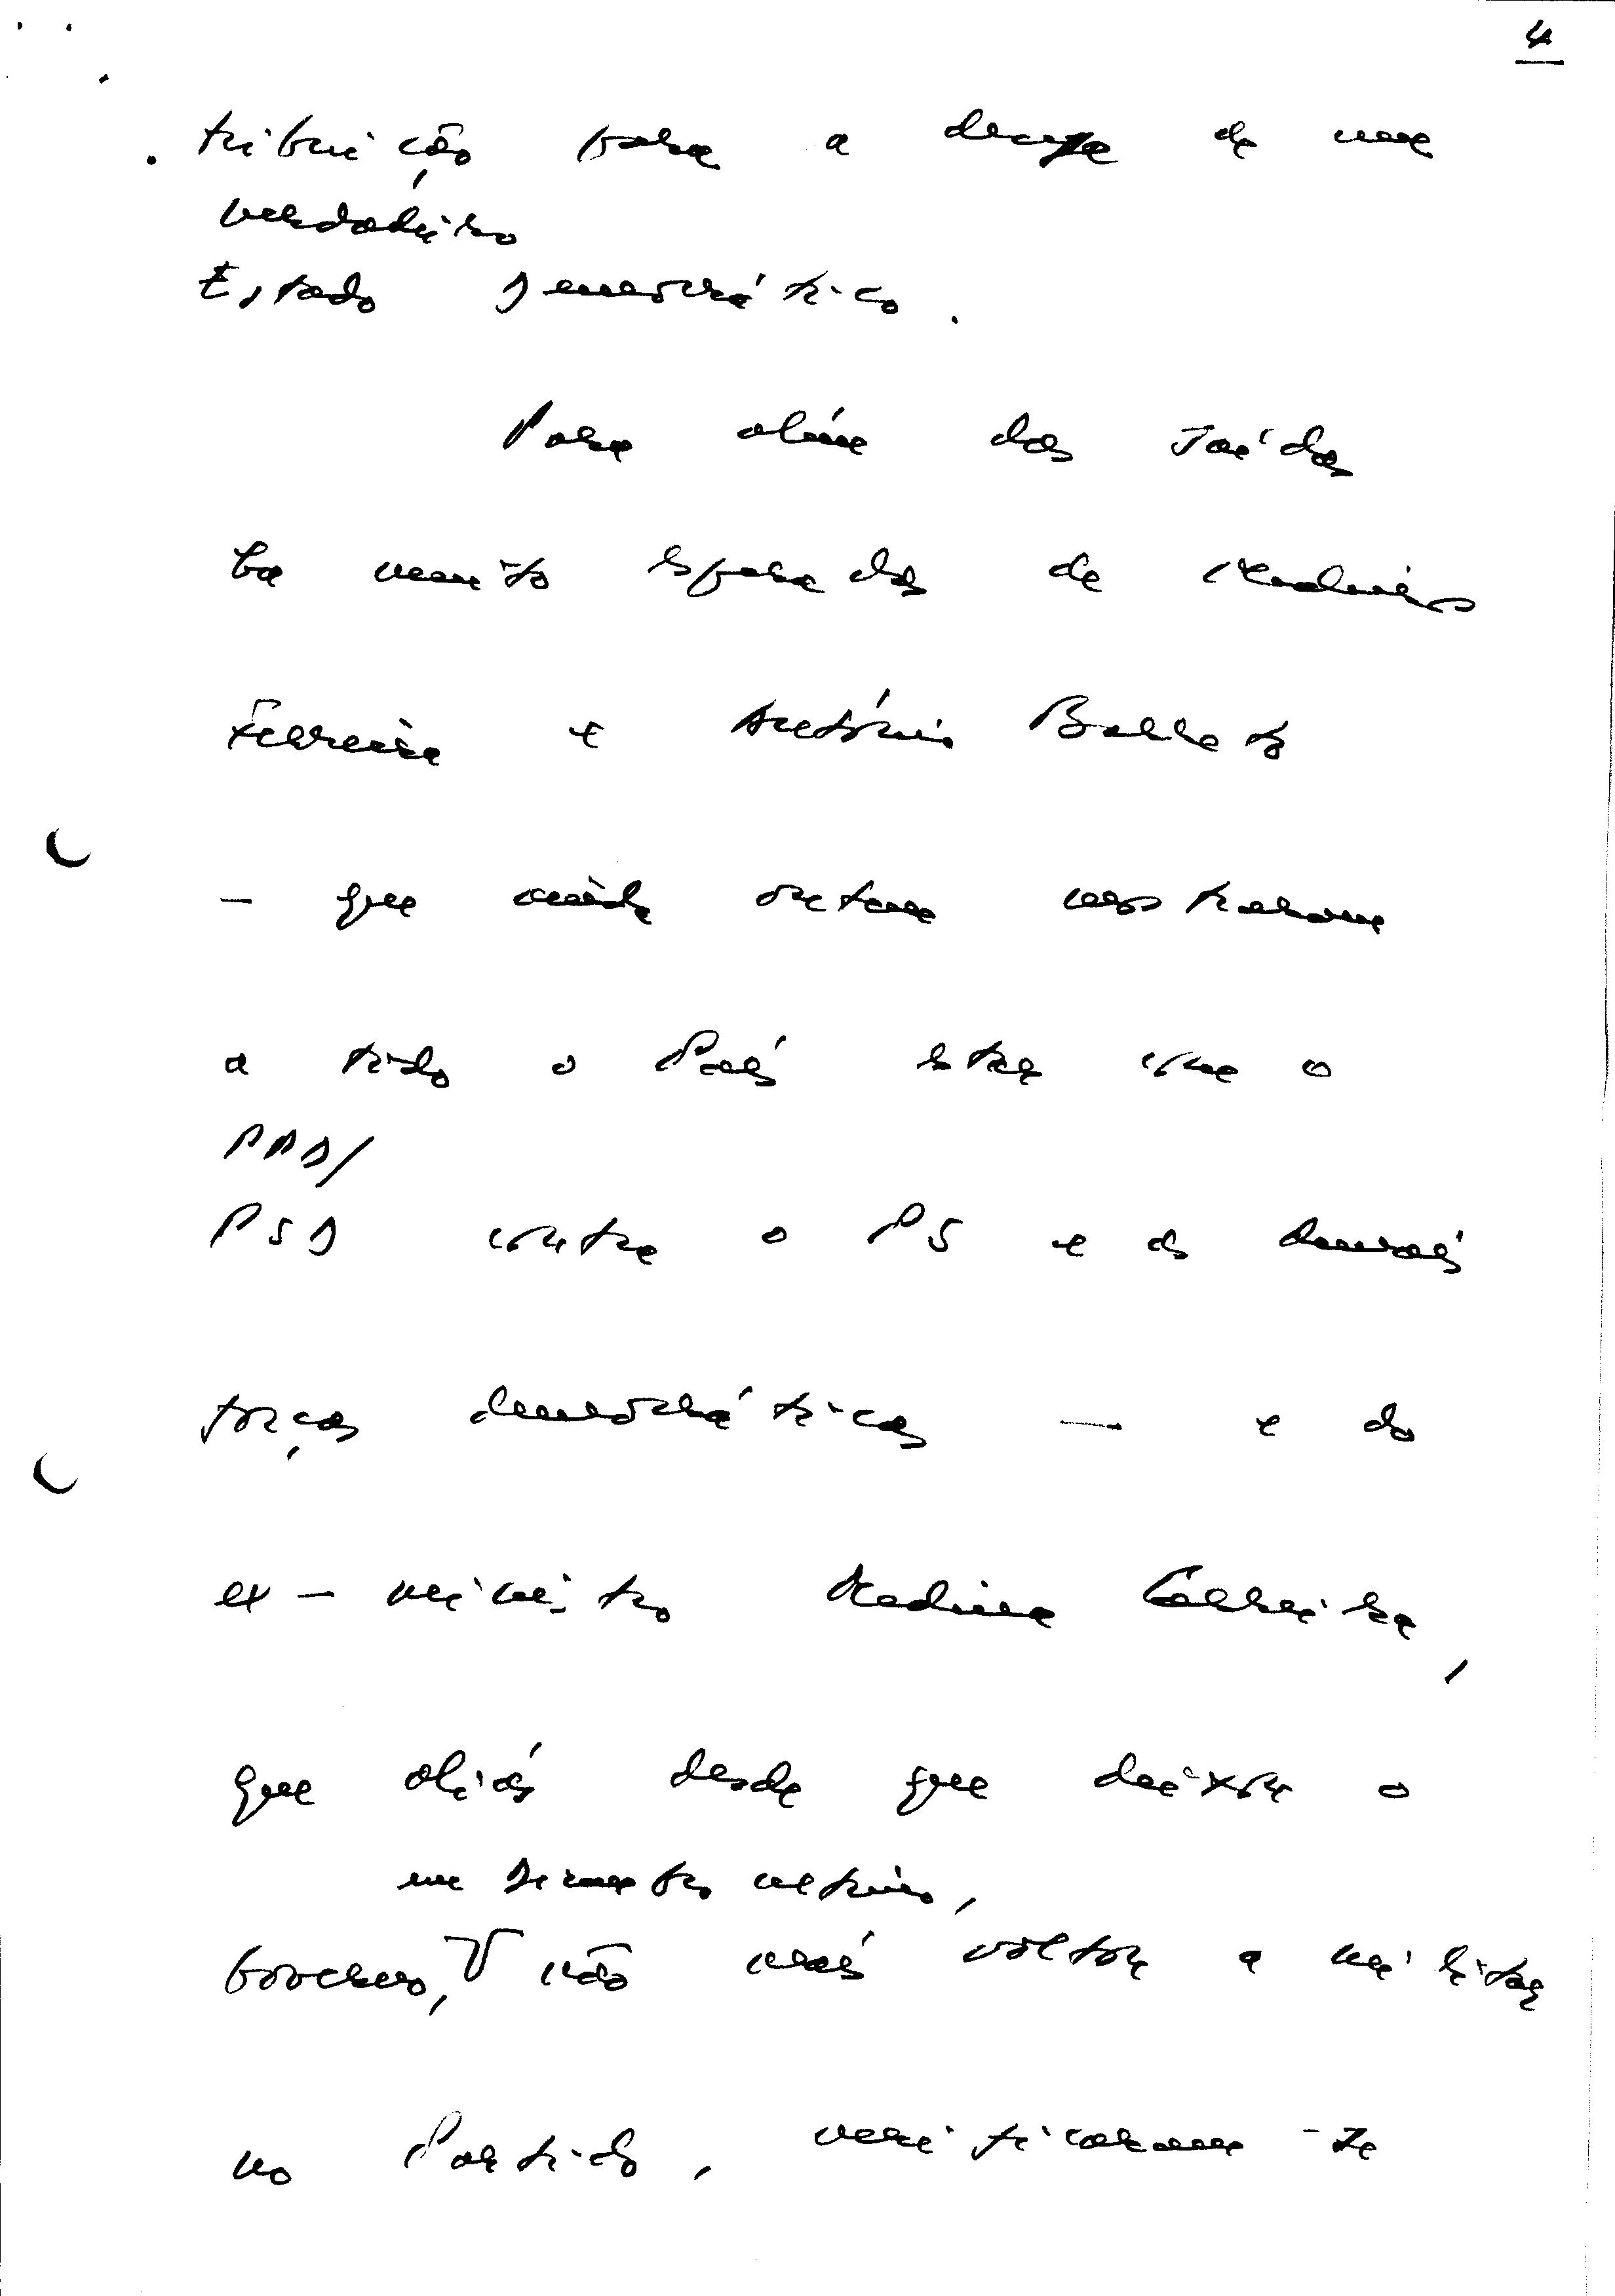 4
tribuição para a defesa de um
verdadeiro
Estado Democrático.
Para além das saídas
há muito esperadas de Medeiros
Ferreira e António Barreto
- que ainda ontem mostraram
a todo o País estar com o
PPD/
PSD contra o PS e as demais
forças democráticas — e do
ex-ministro Medina Carreira,
que aliás desde que deixou o
Governo, não mais voltou a militar
no Partido, verificaram-se